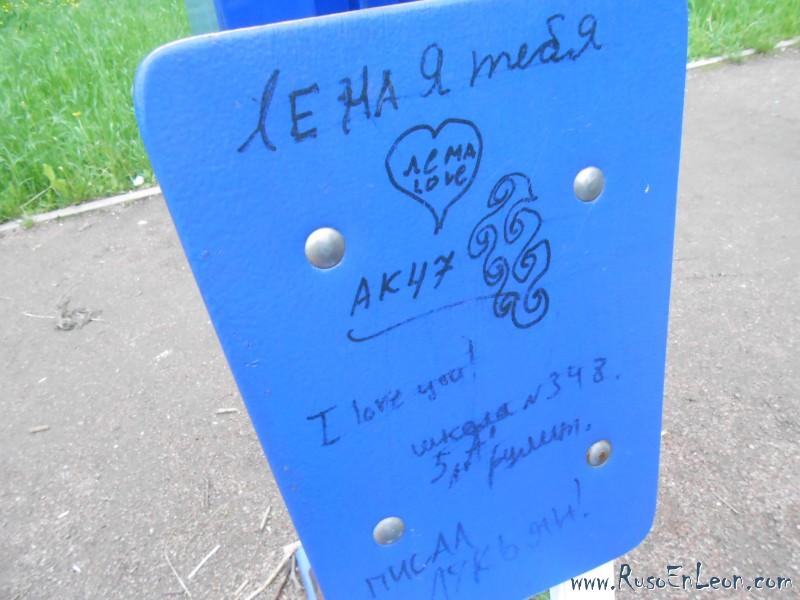 ЛЕНА Я тебя
ЛЕМА
love
АК47
I love you!
школа N 348.
5 "А" рулит.
ПИСАЛ
ЛУКЬЯН!
www.RusoEnLeon.com